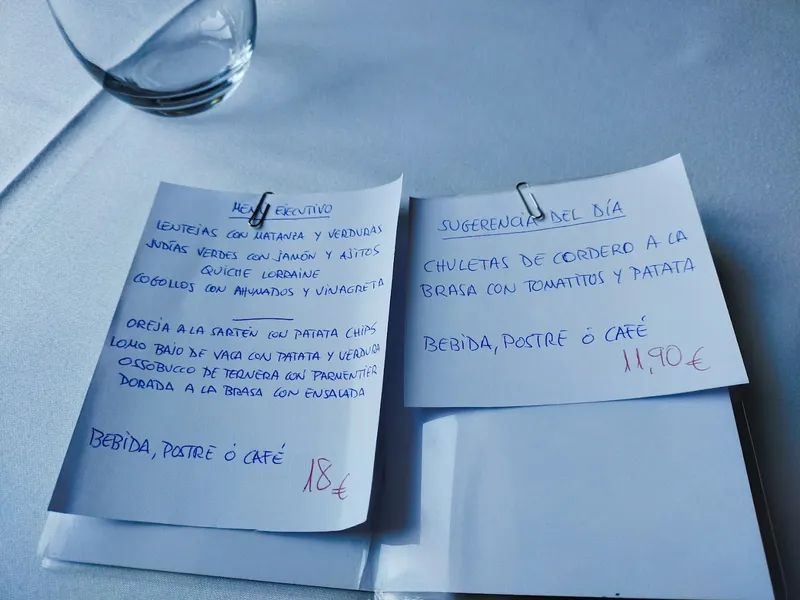 MENÚ EJECUTIVO
LENTEJAS CON MATANZA Y VERDURAS
JUDÍAS VERDES CON JAMÓN Y AJITOS
QUICHE LORRAINE
COGOLLOS CON AHUMADOS Y VINAGRETA
OREJA A LA SARTÉN CON PATATA CHIPS
LOMO BAJO DE VACA CON PATATA Y VERDURA
OSSOBUCCO DE TERNERA CON PARMENTIER
DORADA A LA BRASA CON ENSALADA
BEBIDA, POSTRE Ó CAFÉ
18 €
SUGERENCIA DEL DÍA
CHULETAS DE CORDERO A LA
BRASA CON TOMATITOS Y PATATA
BEBIDA, POSTRE Ó CAFÉ
11,90 €